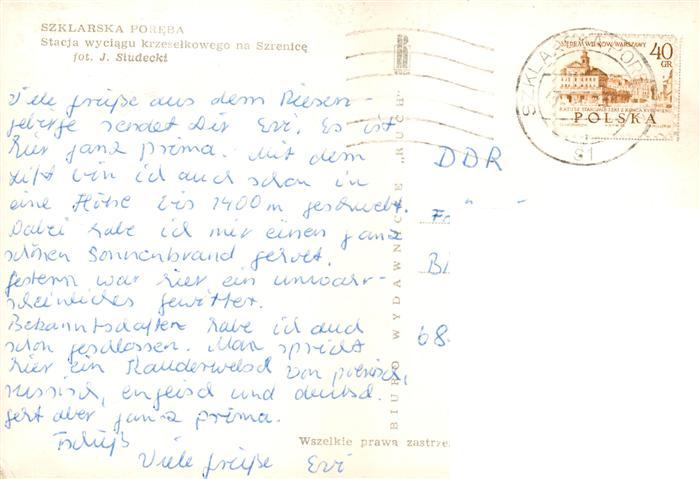 SZKLARSKA PORĘBA
Stacja wyciągu krzesełkowego na Szrenicę
fot. J. Siudecki
Viele Grüße aus dem Riesen-
gebirge sendet Dir Evi. Es ist
hier ganz prima. Mit dem
Lift bin ich auch schon in
eine Höhe bis 1400m geschwebt.
Dabei habe ich mir einen ganz
schönen Sonnenbrand geholt.
Gestern war hier ein unwahr-
scheinliches Gewitter.
Bekanntschaften habe ich auch
schon geschlossen. Man spricht
hier ein Kauderwelsch von polnisch,
russisch, englisch und deutsch.
Geht aber ganz prima.
Tschüß
Viele Grüße Evi
BIURO WYDAWNICZE „RUCH"
Wszelkie prawa zastrzeż
DDR
68
40
GR
POLSKA
SZKLARSKA POR